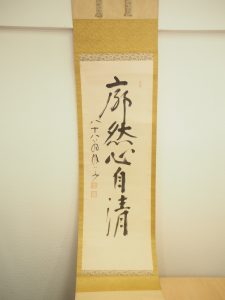 廓然心自清
八十八翁